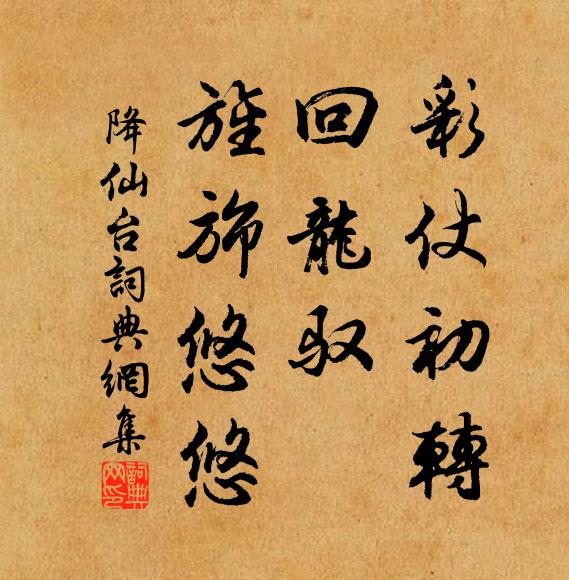 彩仗初轉
回龍馭
旌旆悠悠
降仙台詞典網集